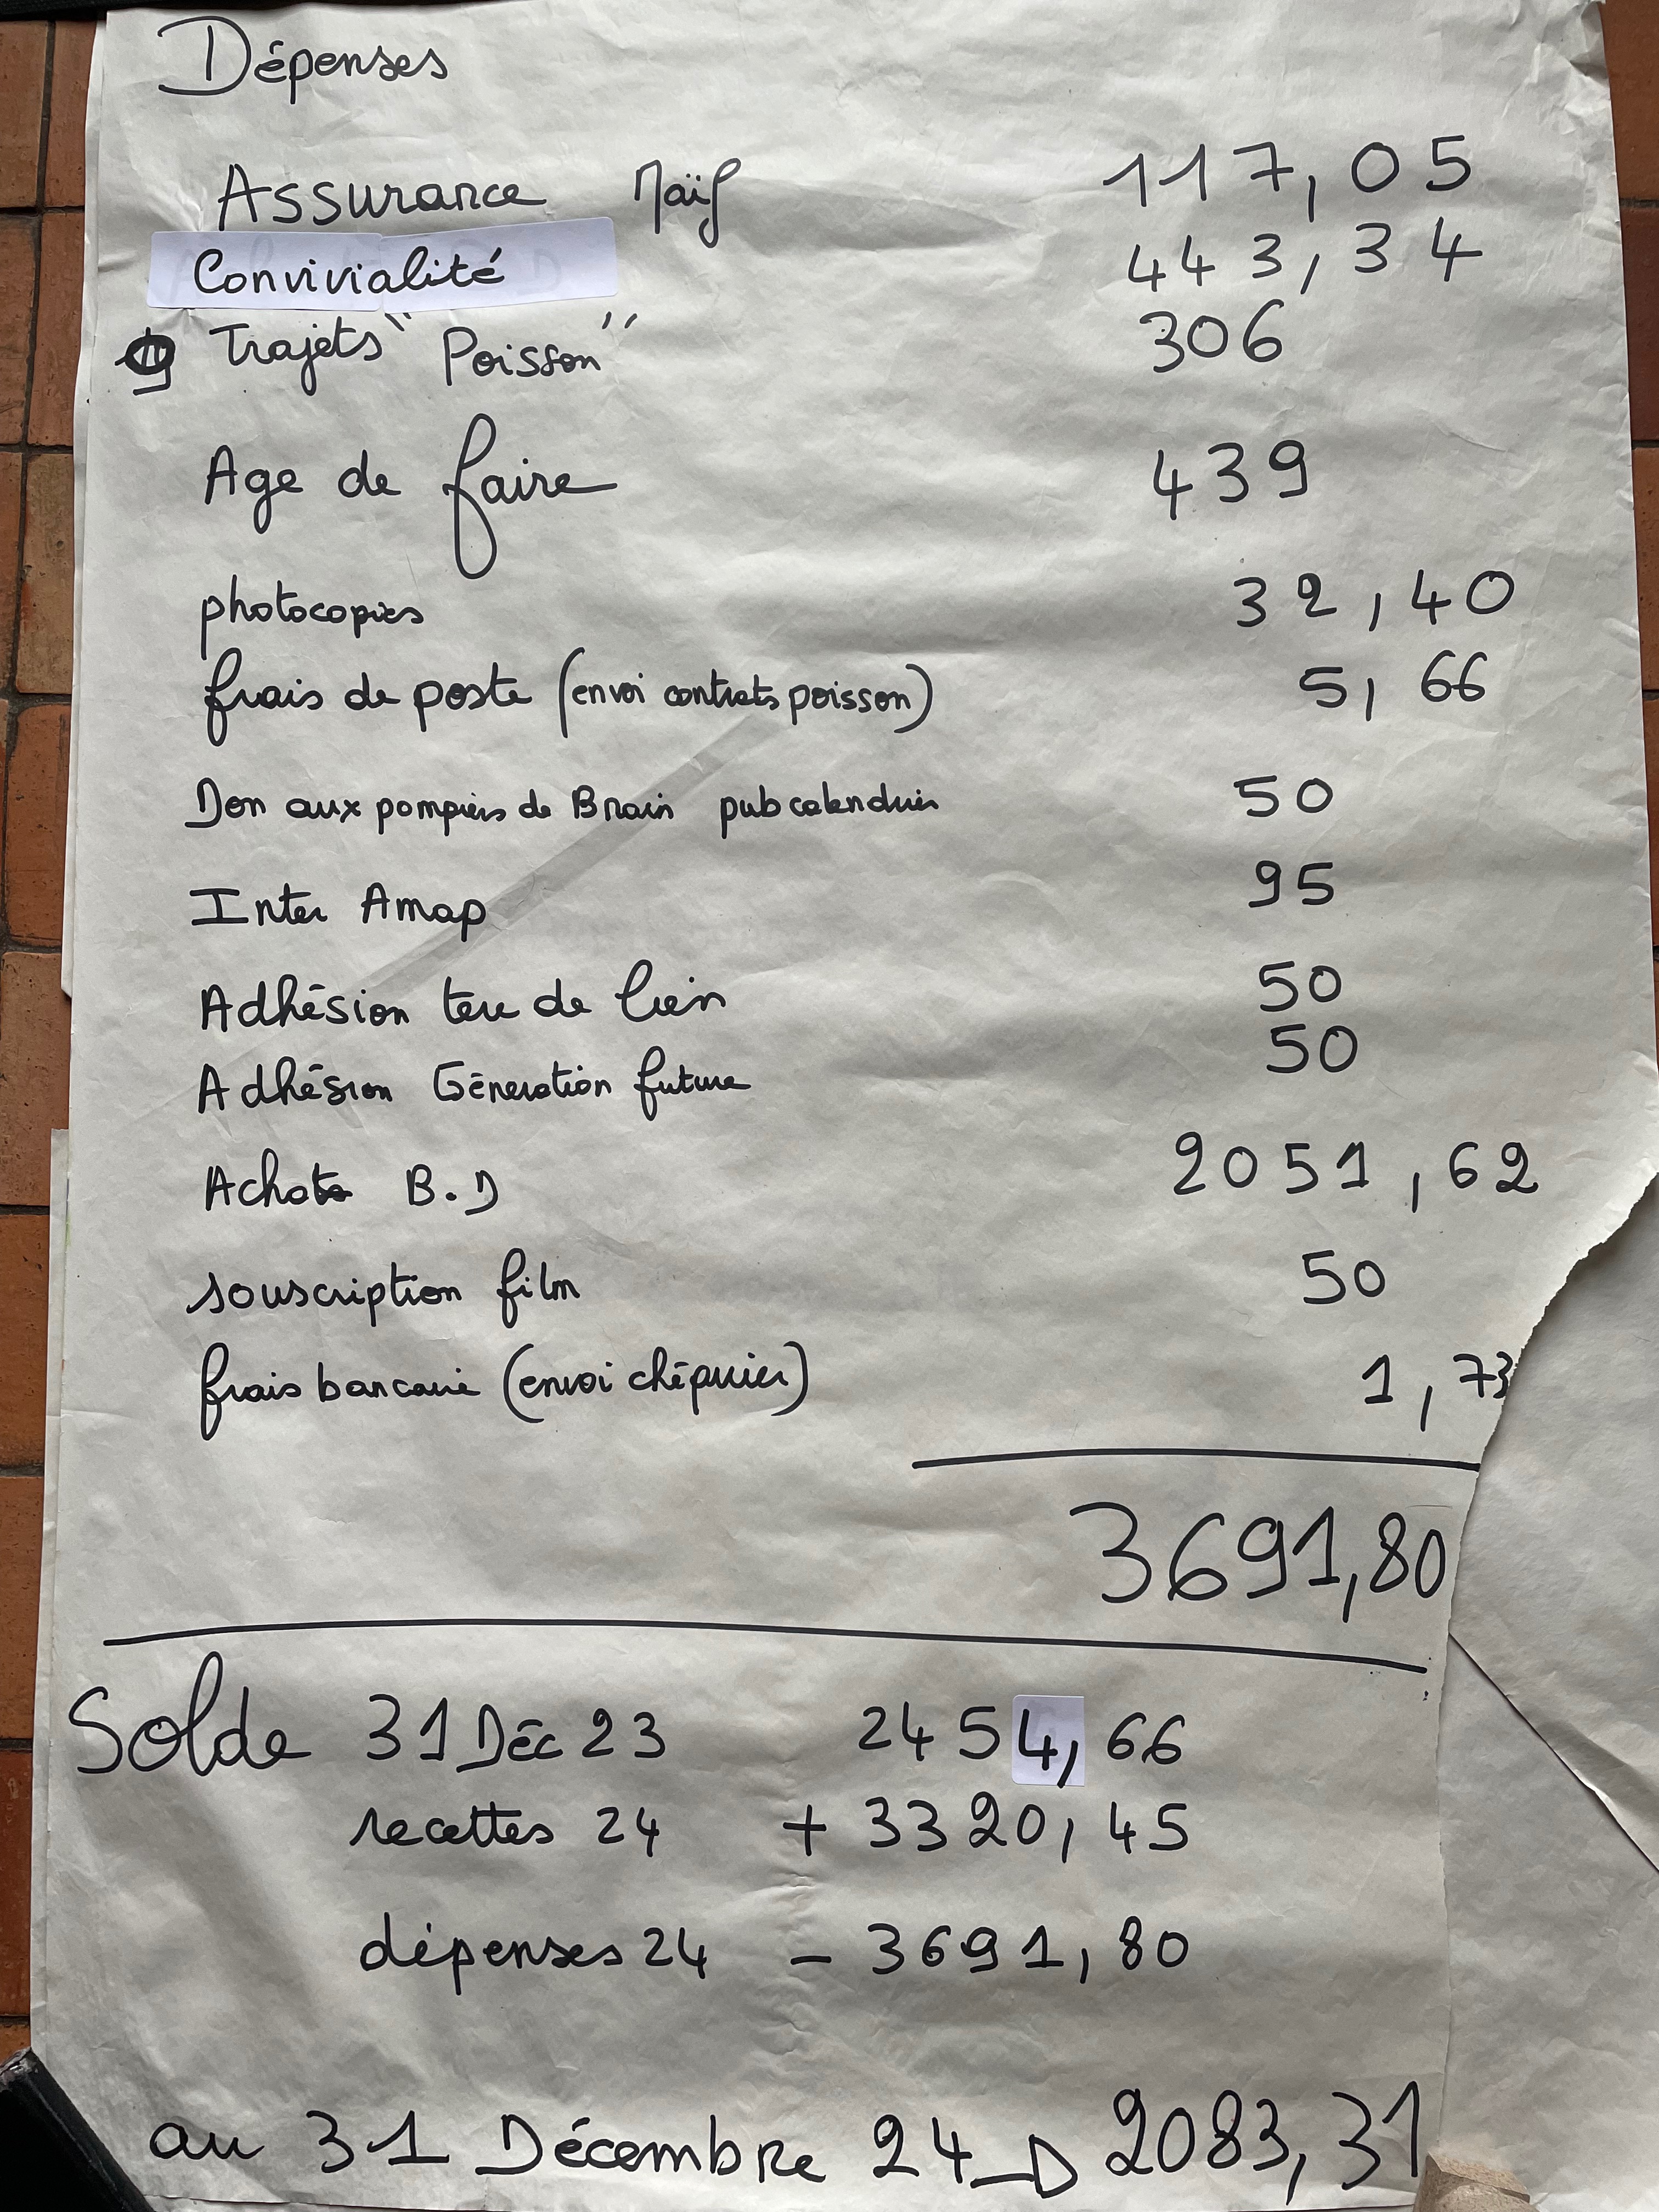 Dépenses
Assurance Maïf 117,05
Convivialité 443,34
9 Trajets "Poisson" 306
Age de faire 439
photocopies 32,40
frais de poste (envoi contrats poisson) 5,66
Don aux pompiers de Brain pub calendrier 50
Inter Amap 95
Adhésion terre de lien 50
Adhésion Génération future 50
Achats B.D 2051,62
souscription film 50
frais bancaire (envoi chéquier) 1,73
3691,80
Solde 31 Déc 23 2454,66
recettes 24 + 3320,45
dépenses 24 - 3691,80
au 31 Décembre 24 → 2083,31